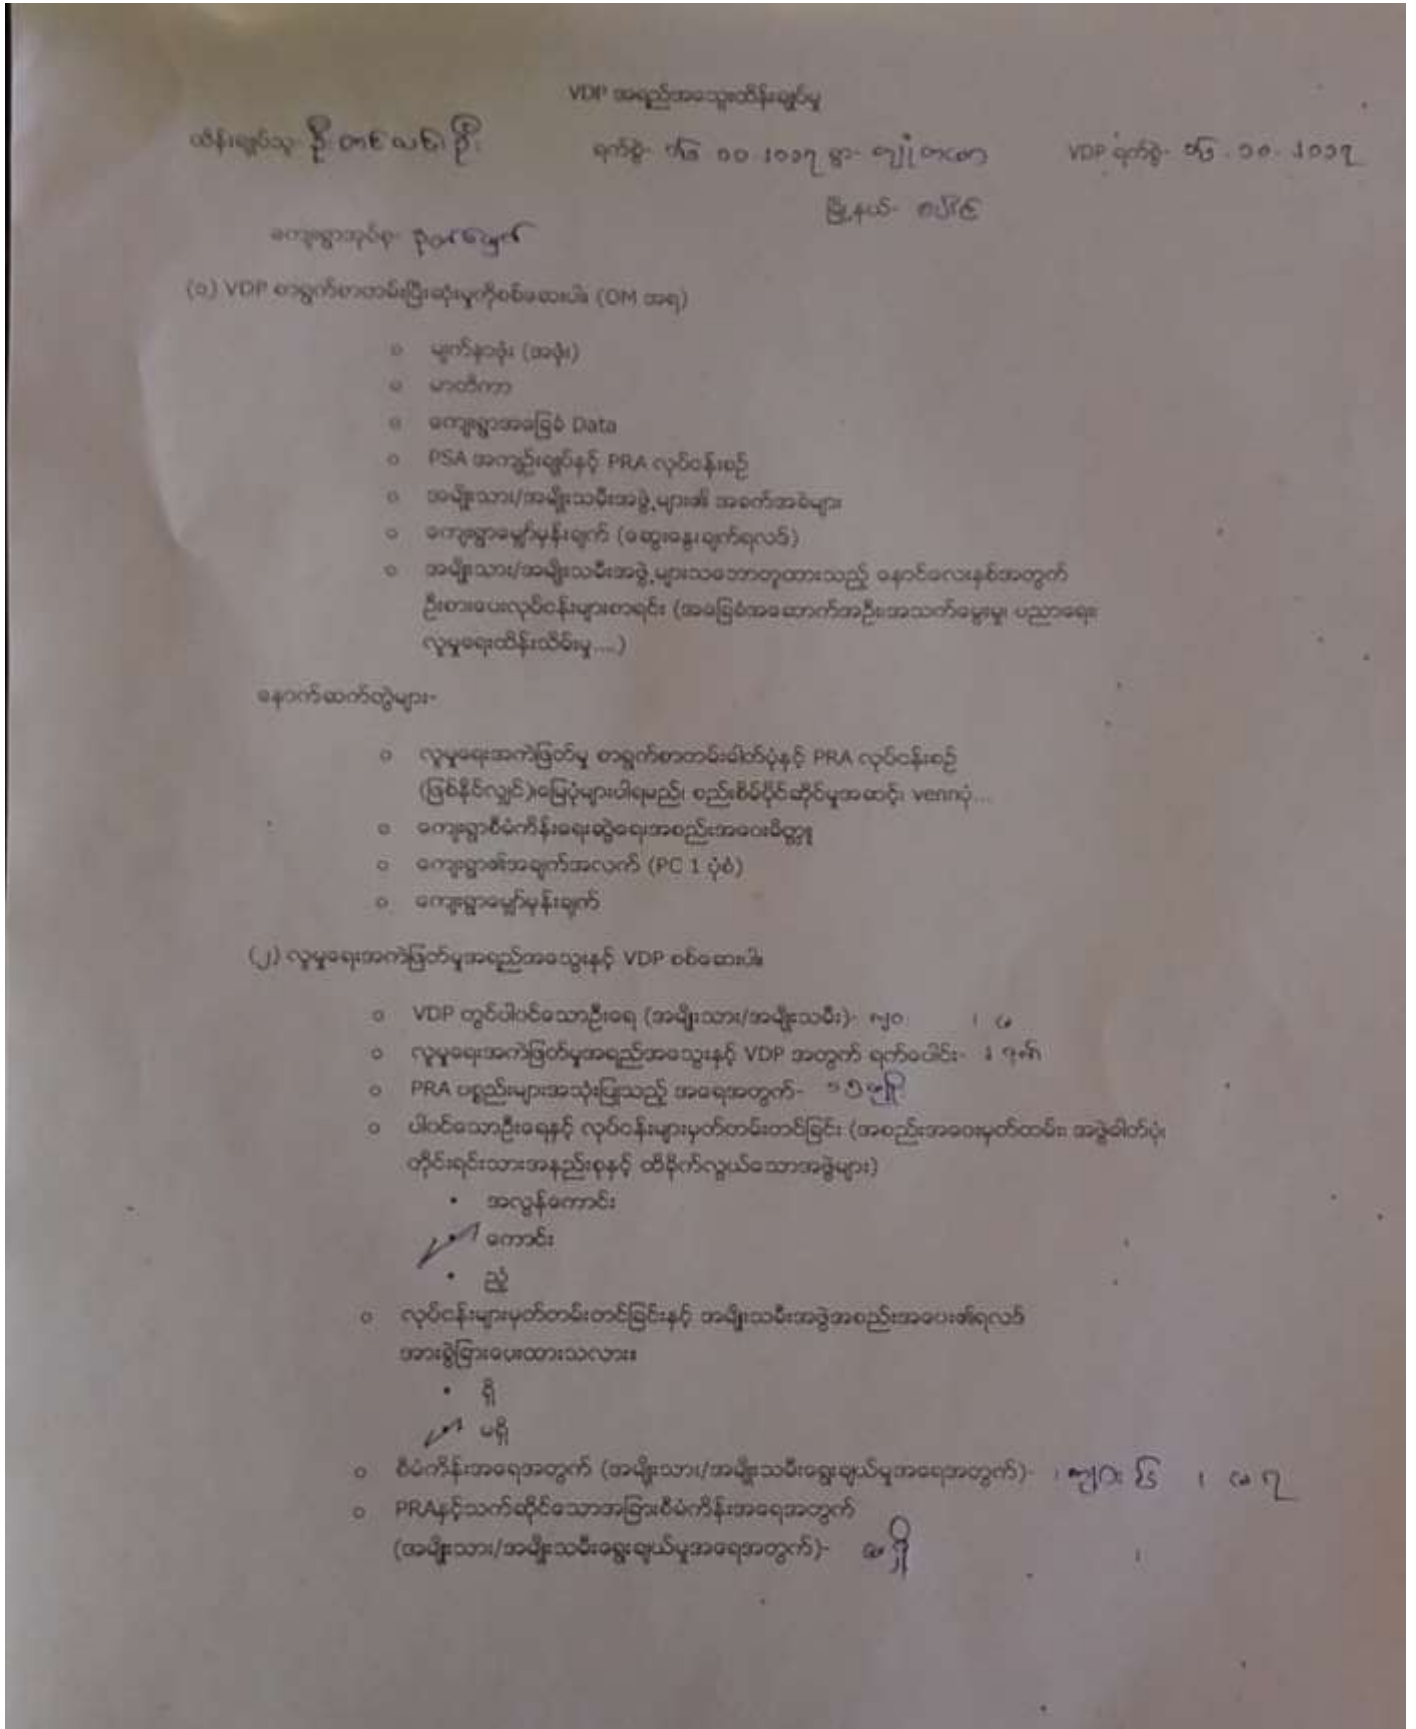 VDP အရည်အသွေးထိန်းချုပ်မှု
ထိန်းချုပ်သူ- ဦးတင်သင်းဦး ရက်စွဲ- ၁၀.၂၀၁၇ ရွာ- VDP ရက်စွဲ- ၁၀.၂၀၁၇
မြို့နယ်-
ကျေးရွာအုပ်စု-
(၁) VDP စာရွက်စာတမ်းပြီးဆုံးမှုကိုစစ်ဆေးပါ။ (OM အရ)
မျက်နှာဖုံး (အဖုံး)
မာတိကာ
ကျေးရွာအခြေခံ Data
PSA အကျဉ်းချုပ်နှင့် PRA လုပ်ငန်းစဉ်
အမျိုးသား/အမျိုးသမီးအဖွဲ့များ၏ အခက်အခဲများ
ကျေးရွာမျှော်မှန်းချက် (ဆွေးနွေးချက်ရလဒ်)
အမျိုးသား/အမျိုးသမီးအဖွဲ့များသဘောတူထားသည့် နောင်လေးနှစ်အတွက်
ဦးစားပေးလုပ်ငန်းများစာရင်း (အခြေခံအဆောက်အဦး၊အသက်မွေးမှု၊ ပညာရေး၊
လူမှုရေးထိန်းသိမ်းမှု....)
နောက်ဆက်တွဲများ-
လူမှုရေးအကဲဖြတ်မှု စာရွက်စာတမ်းဓါတ်ပုံနှင့် PRA လုပ်ငန်းစဉ်
(ဖြစ်နိုင်လျှင်)၊မြေပုံများပါရမည်၊ စည်းစိမ်ပိုင်ဆိုင်မှုအဆင့်၊ vennပုံ...
ကျေးရွာစီမံကိန်းရေးဆွဲရေးအစည်းအဝေးမိတ္တူ
ကျေးရွာ၏အချက်အလက် (PC 1 ပုံစံ)
ကျေးရွာမျှော်မှန်းချက်
(၂) လူမှုရေးအကဲဖြတ်မှုအရည်အသွေးနှင့် VDP စစ်ဆေးပါ။
VDP တွင်ပါဝင်သောဦးရေ (အမျိုးသား/အမျိုးသမီး)-
လူမှုရေးအကဲဖြတ်မှုအရည်အသွေးနှင့် VDP အတွက် ရက်ပေါင်း-
PRA ပစ္စည်းများအသုံးပြုသည့် အရေအတွက်-
ပါဝင်သောဦးရေနှင့် လုပ်ငန်းများမှတ်တမ်းတင်ခြင်း (အစည်းအဝေးမှတ်တမ်း၊ အဖွဲ့ဓါတ်ပုံ၊
တိုင်းရင်းသားအနည်းစုနှင့် ထိခိုက်လွယ်သောအဖွဲ့များ)
• အလွန်ကောင်း
• ကောင်း
• ညံ့
လုပ်ငန်းများမှတ်တမ်းတင်ခြင်းနှင့် အမျိုးသမီးအဖွဲ့အစည်းအဝေး၏ရလဒ်
အားခွဲခြားပေးထားသလား။
• ရှိ
• မရှိ
စီမံကိန်းအရေအတွက် (အမျိုးသား/အမျိုးသမီးရွေးချယ်မှုအရေအတွက်)-
PRAနှင့်သက်ဆိုင်သောအခြားစီမံကိန်းအရေအတွက်
(အမျိုးသား/အမျိုးသမီးရွေးချယ်မှုအရေအတွက်)- မရှိ